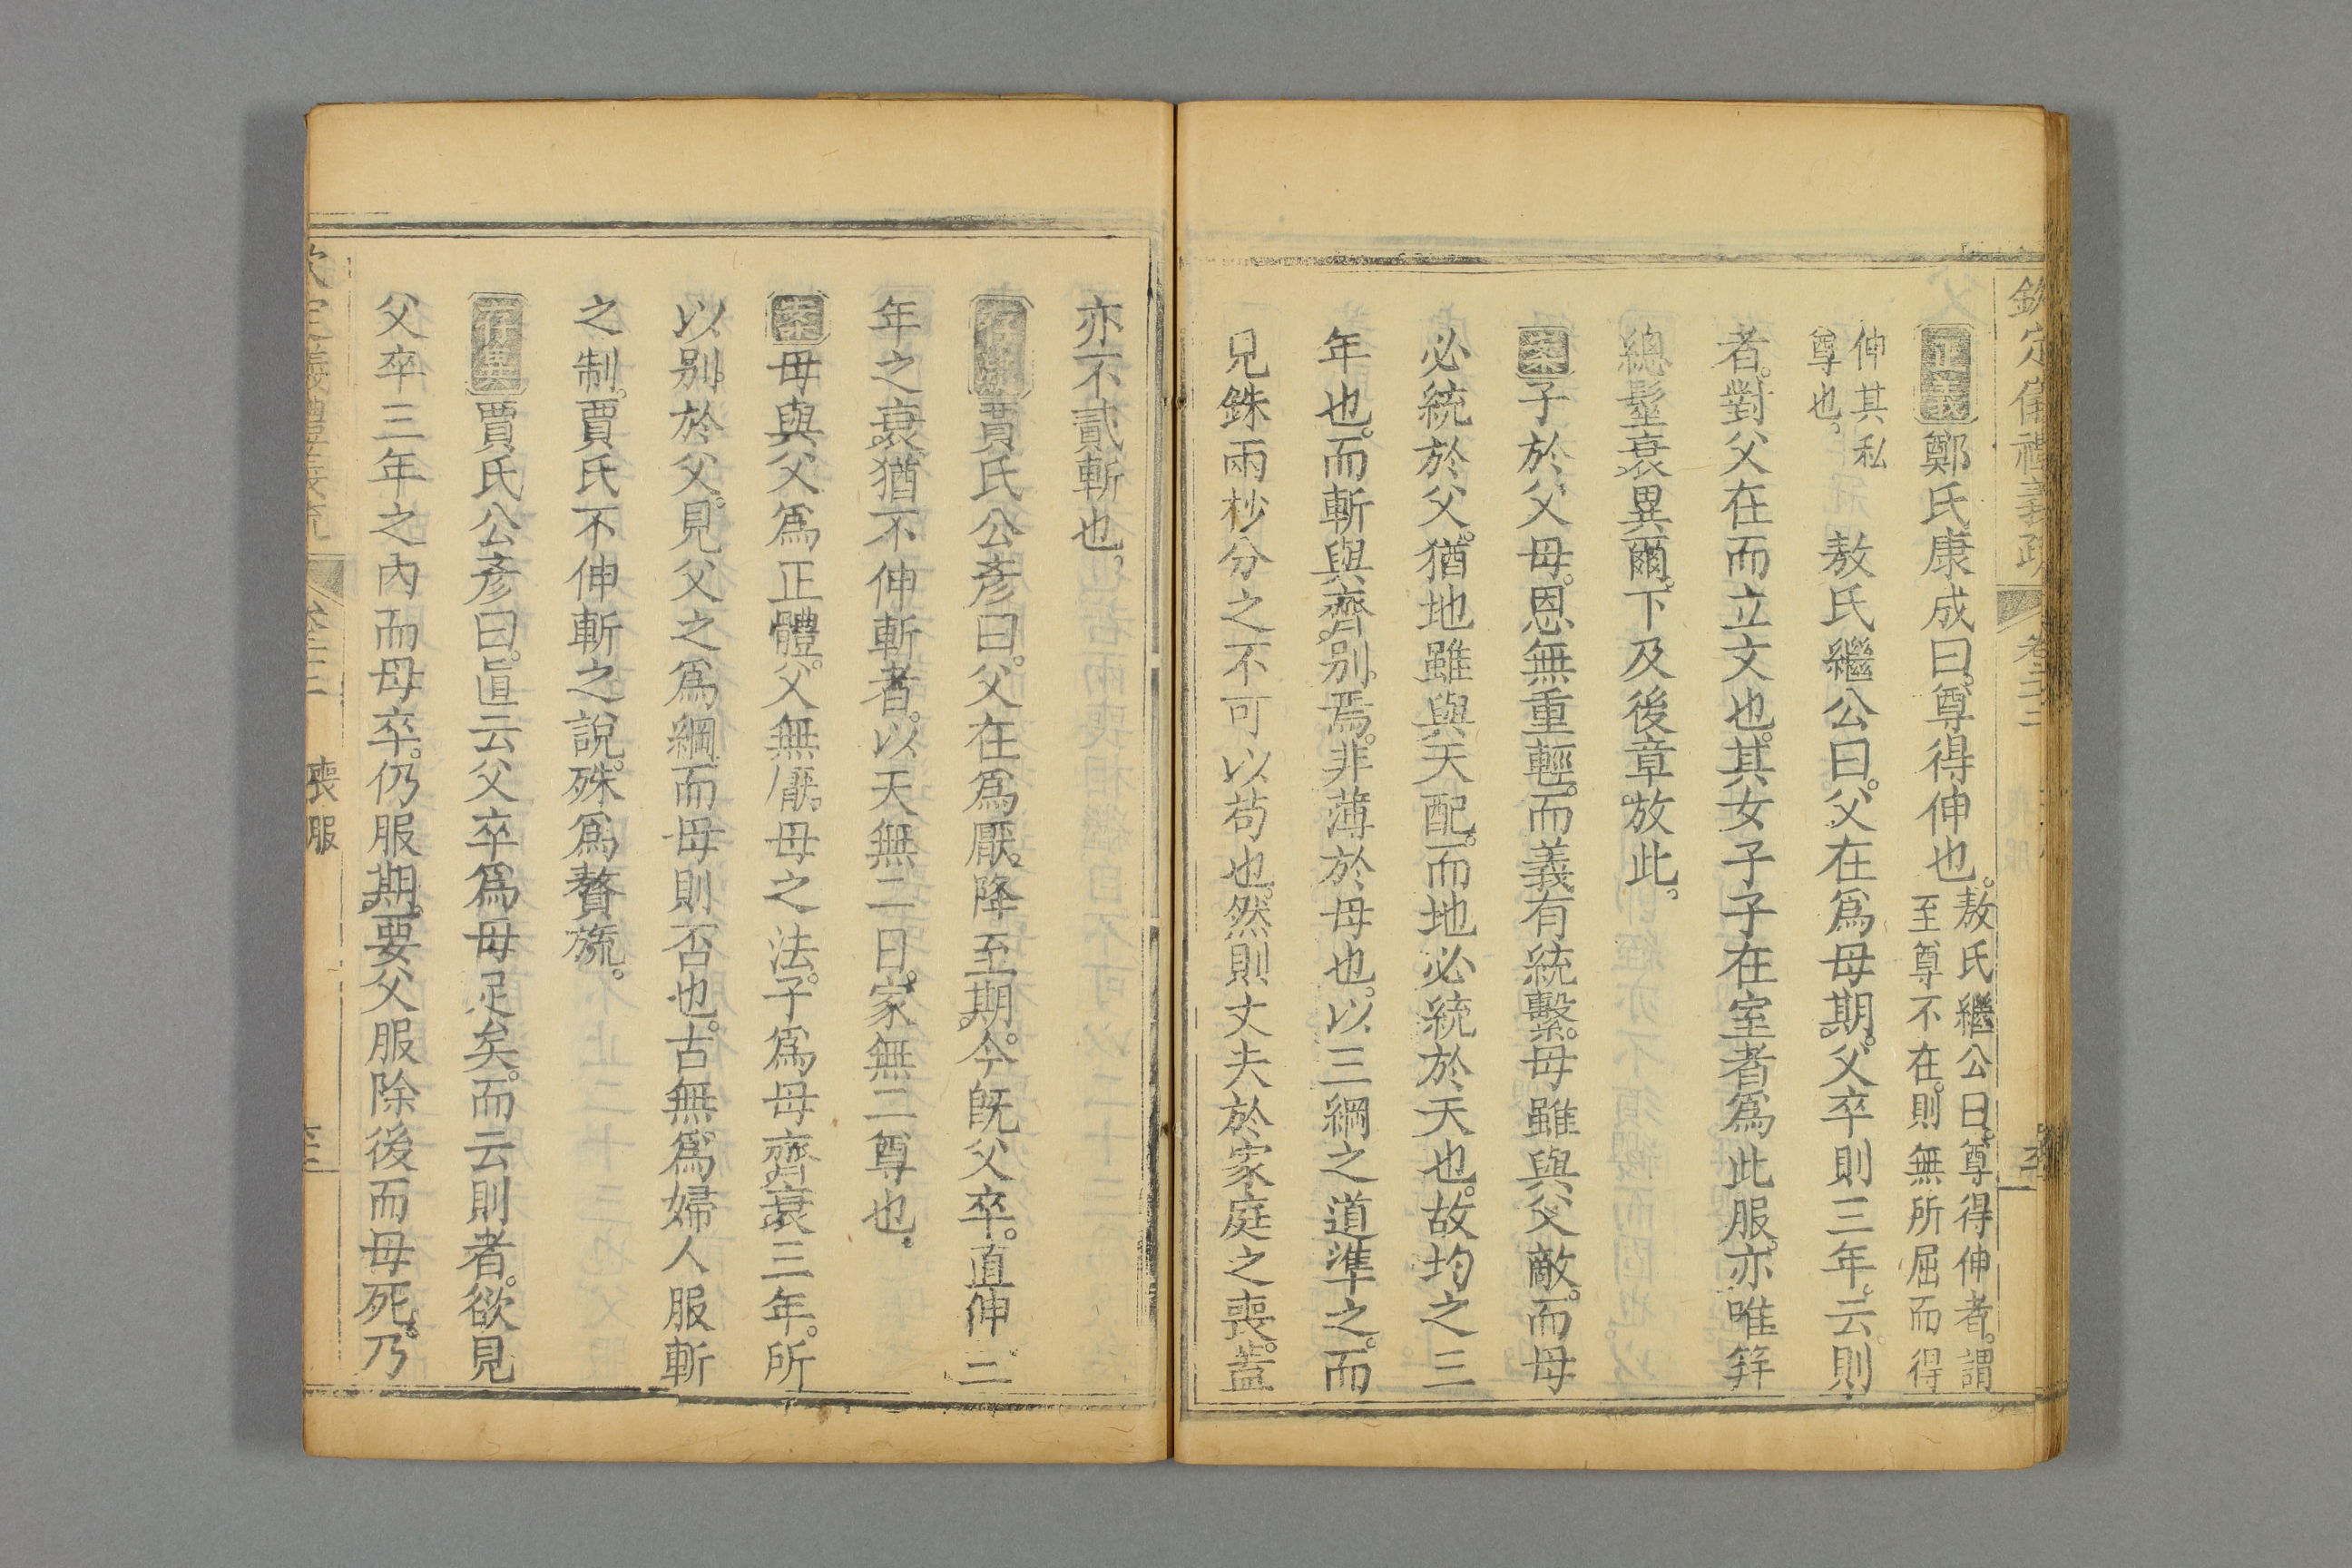 欽定儀禮義疏 卷二十二
正義鄭氏康成曰。尊得伸也。敖氏繼公曰。尊得伸者。謂至尊不在。則無所屈而得
伸其私尊也。 敖氏繼公曰。父在爲母期。父卒則三年。云則
者。對父在而立文也。其女子子在室者爲此服。亦唯笄
總髽衰異爾。下及後章放此。
案子於父母。恩無重輕。而義有統繫。母雖與父敵。而母
必統於父。猶地雖與天配。而地必統於天也。故均之三
年也。而斬與齊別焉。非薄於母也。以三綱之道準之。而
見銖兩杪分之不可以苟也。然則丈夫於家庭之喪。蓋
亦不貳斬也。
存疑賈氏公彥曰。父在爲厭。降至期。今旣父卒。直伸三
年之衰。猶不伸斬者。以天無二日。家無二尊也。
案母與父爲正體。父無厭母之法。子爲母齊衰三年。所
以別於父。見父之爲綱而母則否也。古無爲婦人服斬
之制。賈氏不伸斬之說。殊爲贅旒。
存異賈氏公彥曰。直云父卒爲母足矣。而云則者。欲見
父卒三年之內而母卒。仍服期。要父服除後而母死。乃
喪服